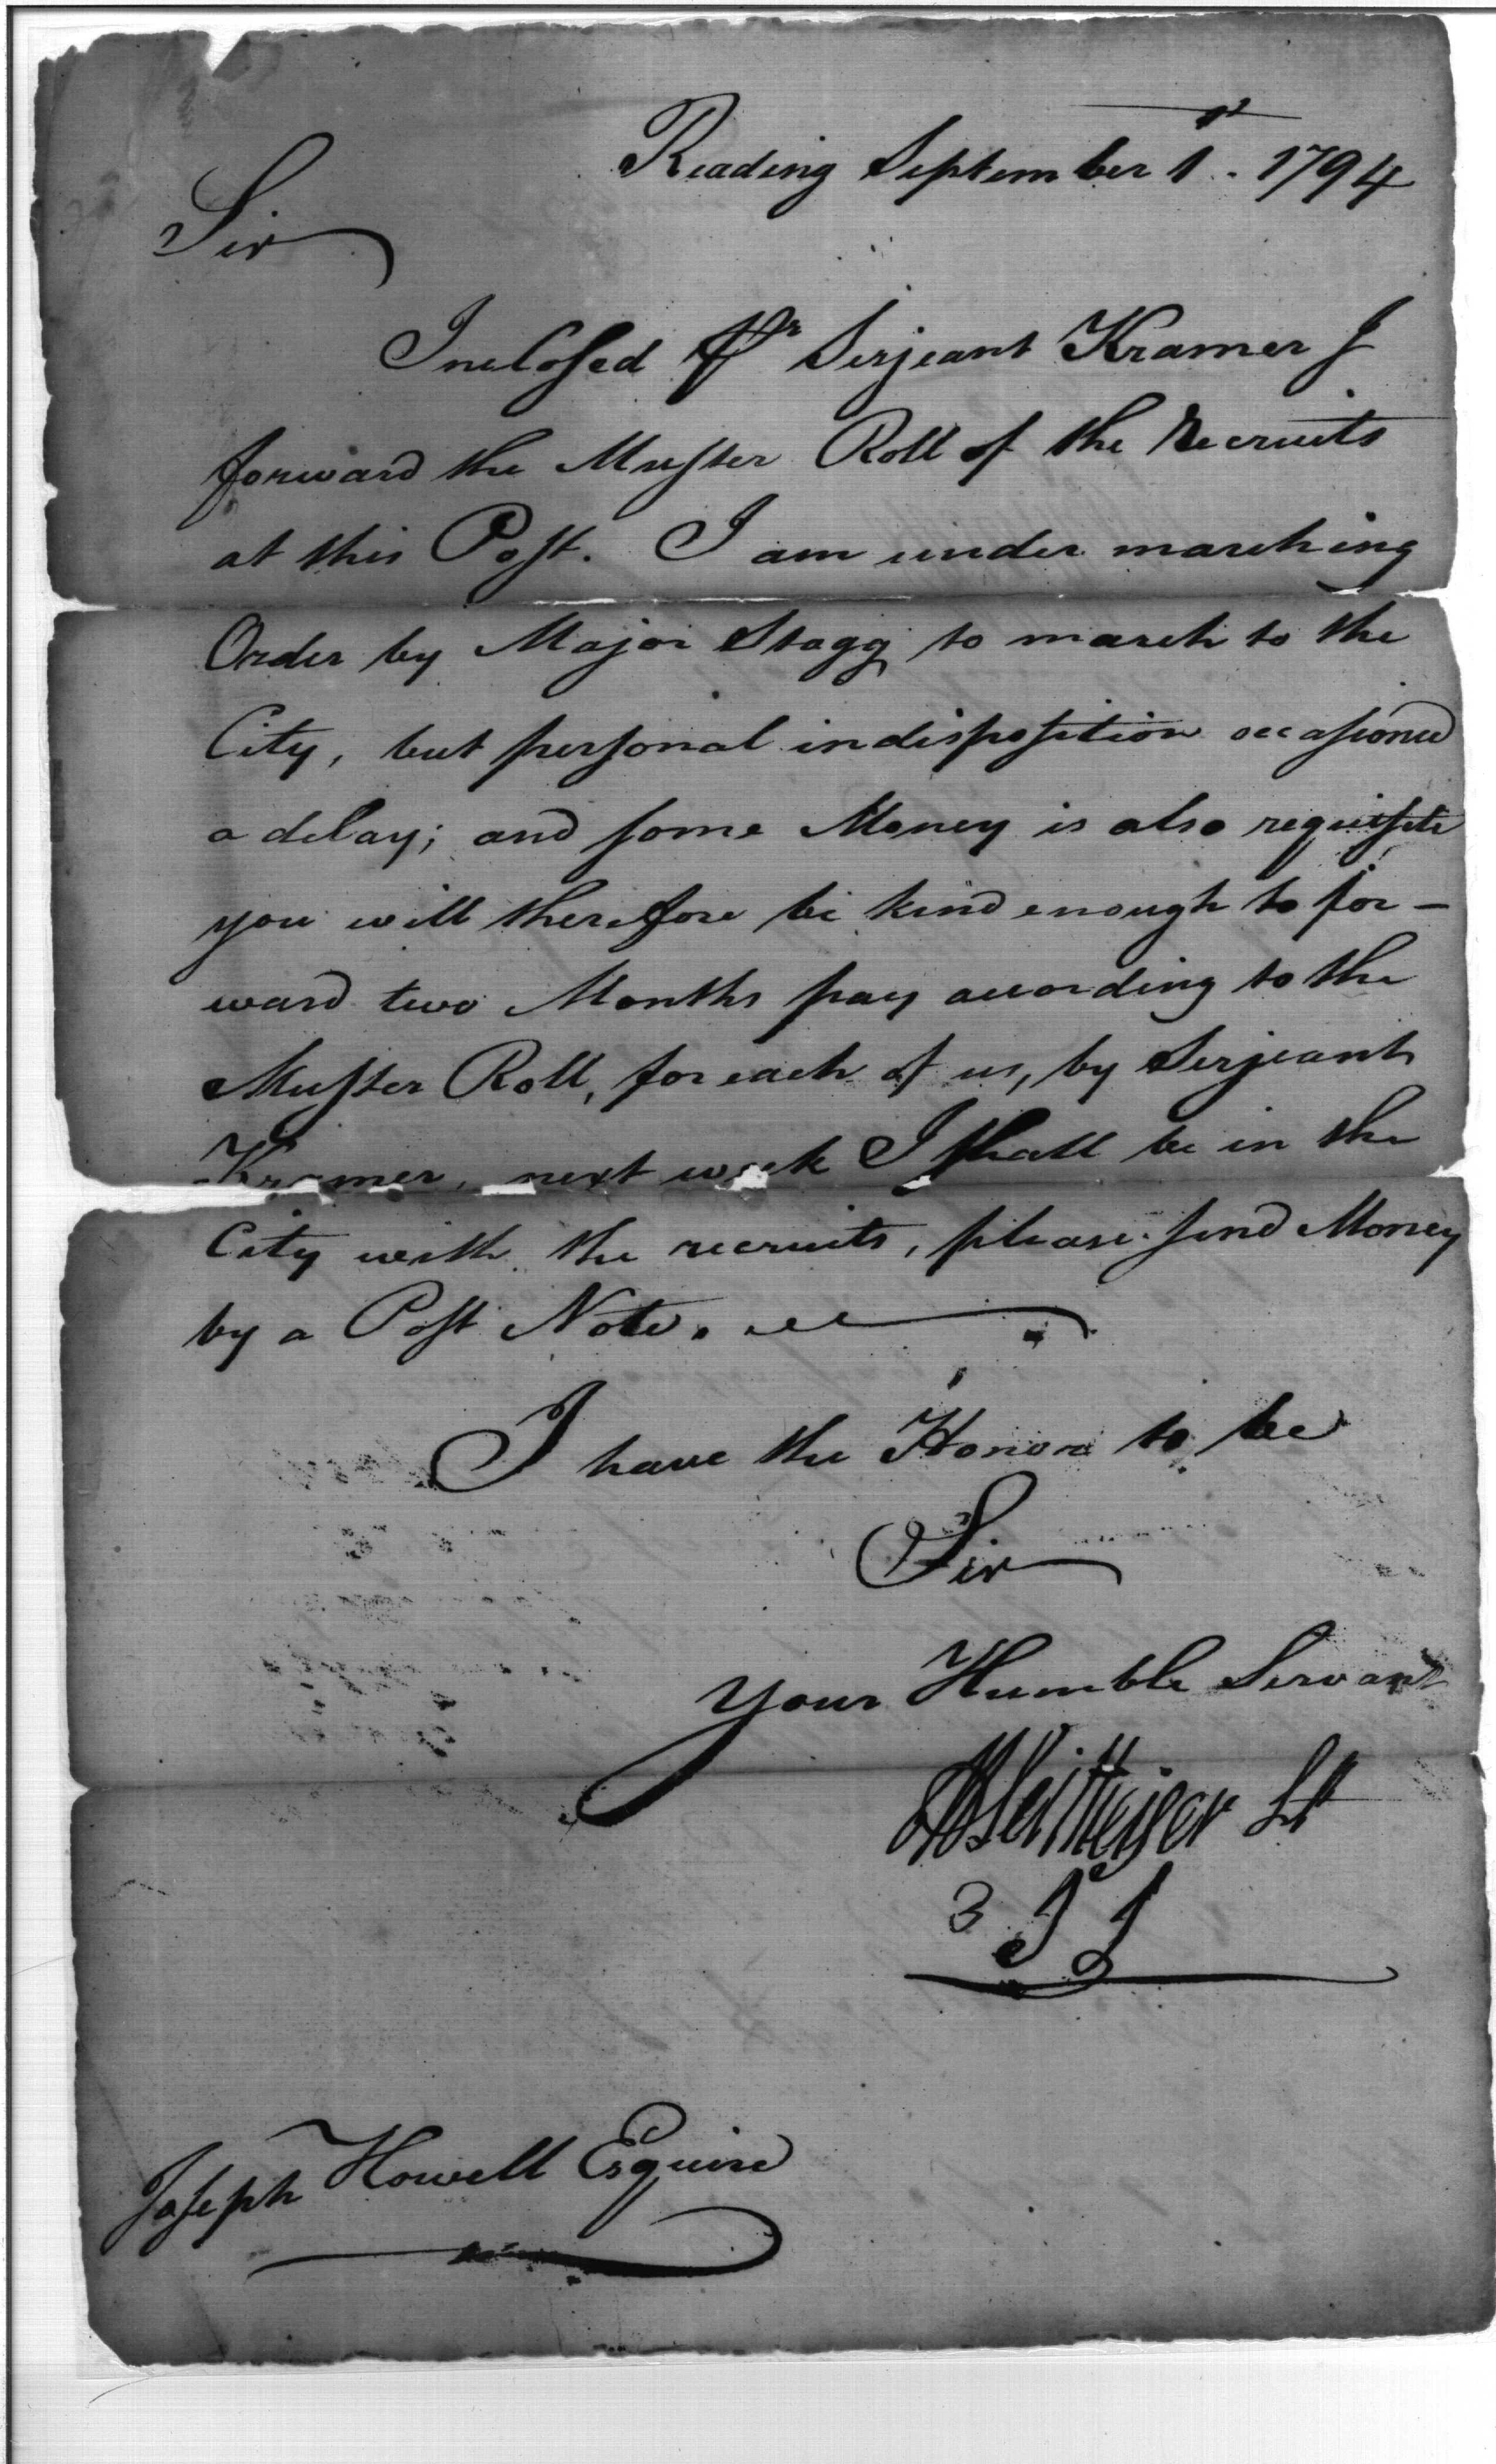 Reading September 1st. 1794
Sir
Inclosed pr Serjeant Kramer I
forward the Muster Roll of the Recruits
at this Post. I am under marching
Order by Major Stagg to march to the
City, but personal indisposition occasioned
a delay; and some Money is also requisite
you will therefore be kind enough to for-
ward two Months pay according to the
Muster Roll, for each of us, by Serjeant
Kramer, next week I shall be in the
City with the recruits, please send Money
by a Post Note.
I have the Honor to be
Sir
your Humble Servant
Lt
3
Joseph Howell Esquire